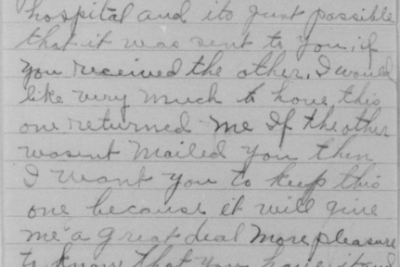 hospital and its just possible
that it was sent to you, if
you received the other, I would
like very much to have this
one returned me If the other
wasent mailed you then
I want you to keep this
one because it will give
me a great deal more pleasure
to know that you have it and